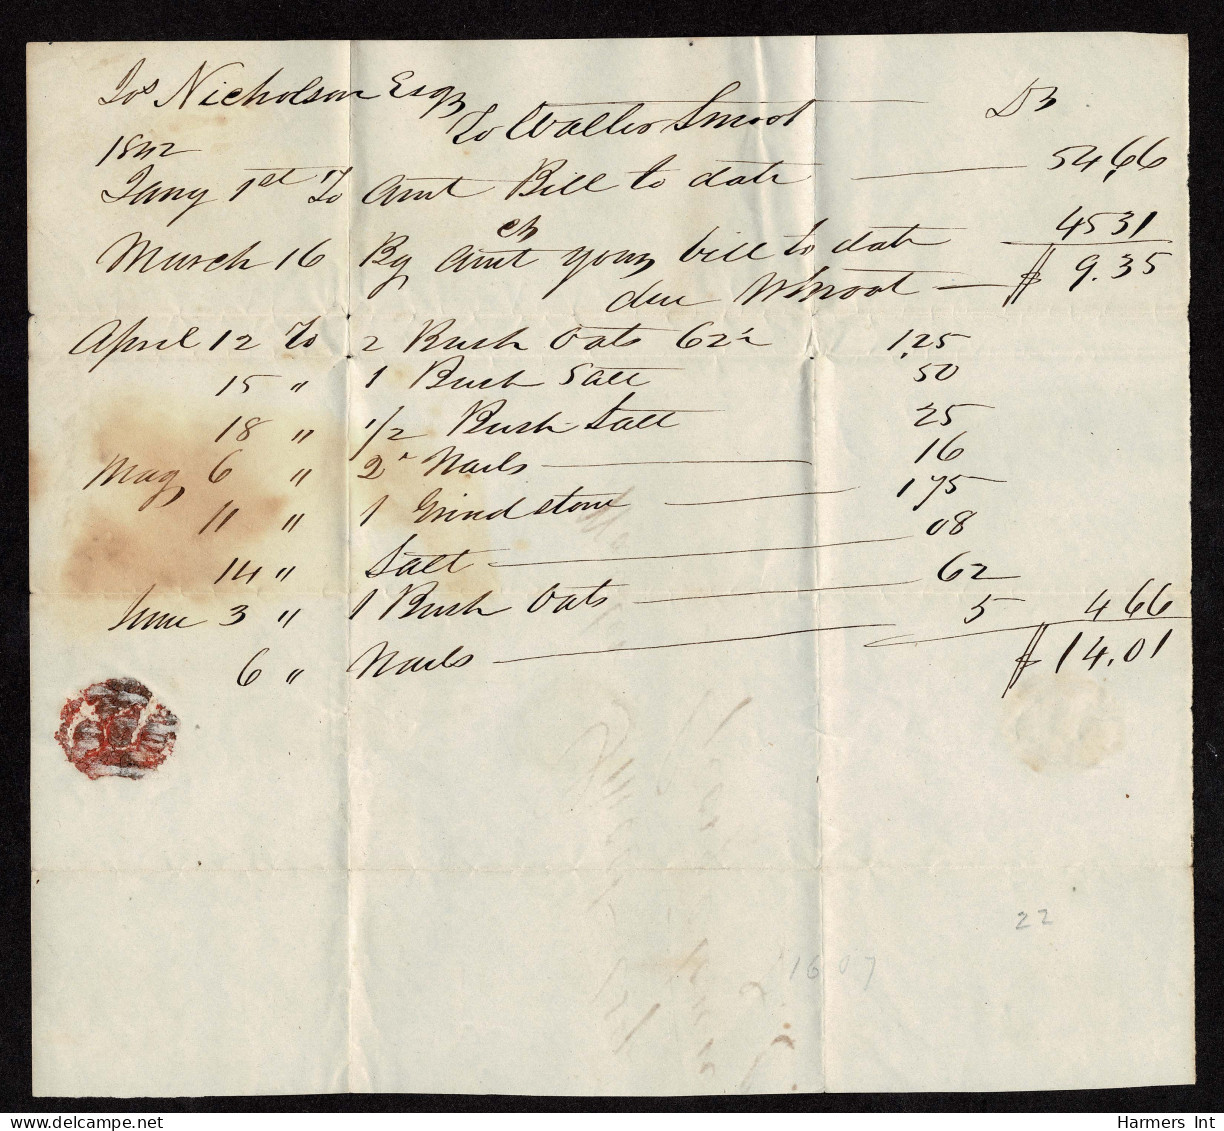 Jos Nicholson Esqr
To Walter Smoot Dr
1842
Jany 1st To Amt Bill to date 54.66
March 16 By Amt your bill to date 45 31
due W Smoot $ 9.35
April 12 To 2 Bush Oats 62½ 1.25
15 " 1 Bush Salt .50
18 " 1/2 Bush Salt 25
May 6 " 2 Nails 16
11 " 1 Grindstone 1 75
14 " Salt 08
June 3 " 1 Bush Oats 62
6 " Nails 5 4 66
$ 14.01
22
1607
Harmers Int